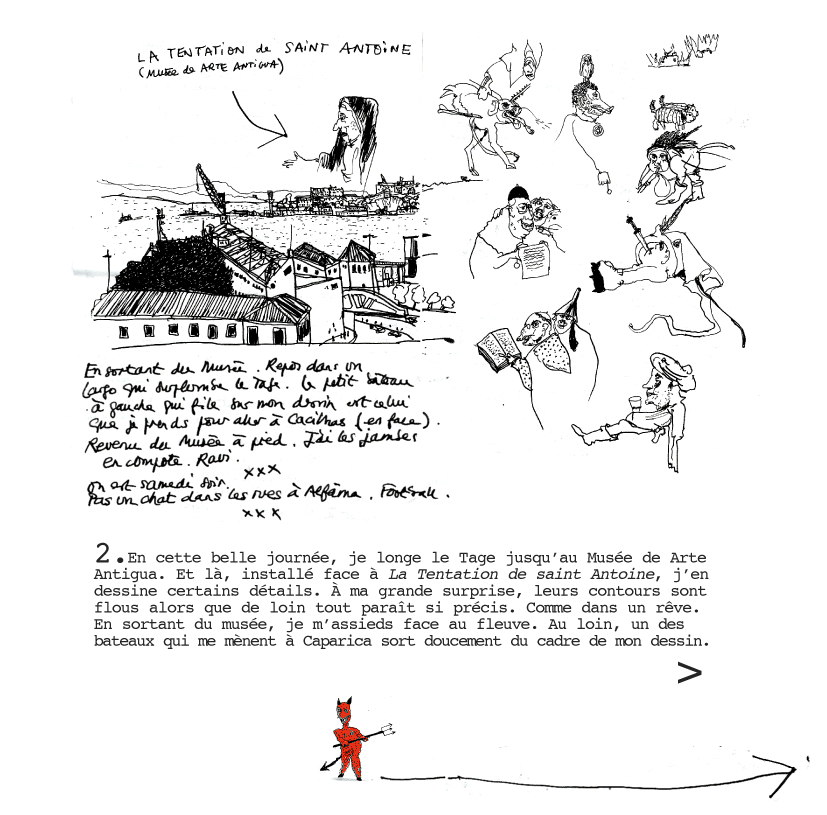 LA TENTATION de SAINT ANTOINE
(MUSÉE de ARTE ANTIGUA)
En sortant du Musée. Repos dans un
largo qui surplombe le Tage. Le petit bateau
à gauche qui file sur mon dessin est celui
que je prends pour aller à Cacilhas (en face).
Revenu du Musée à pied. J'ai les jambes
en compote. Ravi.
xxx
On est samedi soir.
Pas un chat dans les rues à Alfama. Football.
xxx
2.En cette belle journée, je longe le Tage jusqu'au Musée de Arte
Antigua. Et là, installé face à La Tentation de saint Antoine, j'en
dessine certains détails. À ma grande surprise, leurs contours sont
flous alors que de loin tout paraît si précis. Comme dans un rêve.
En sortant du musée, je m'assieds face au fleuve. Au loin, un des
bateaux qui me mènent à Caparica sort doucement du cadre de mon dessin.
>